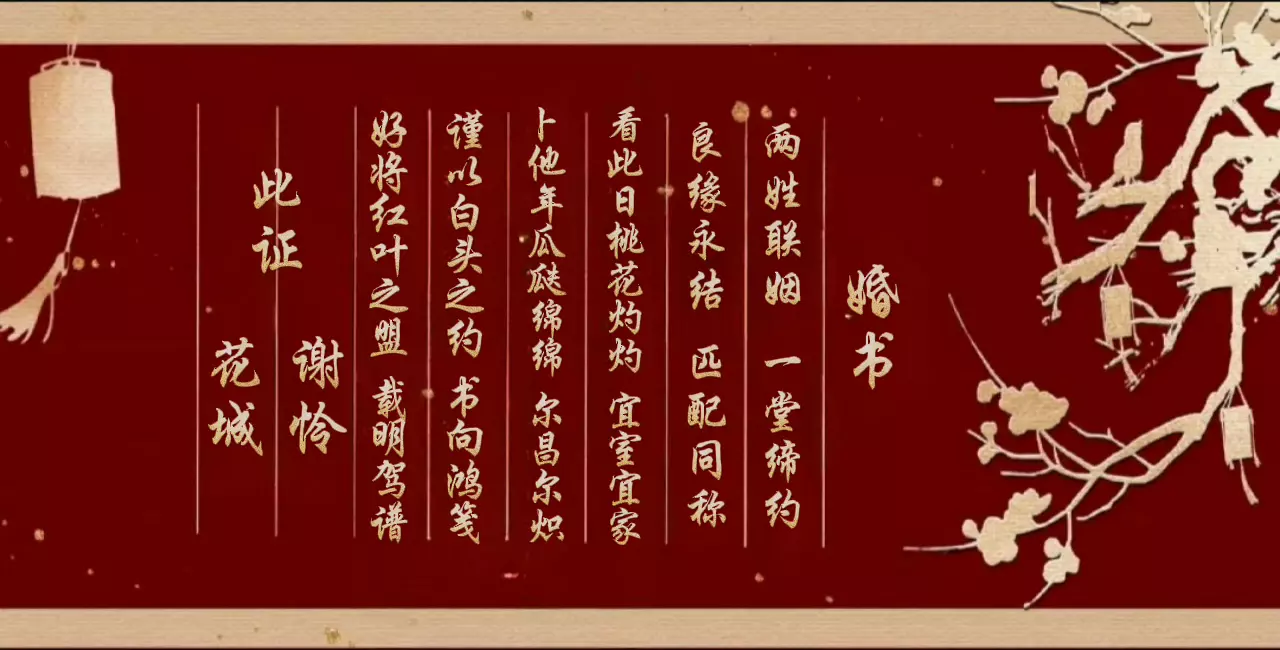 婚书
两姓联姻 一堂缔约
良缘永结 匹配同称
看此日桃花灼灼 宜室宜家
卜他年瓜瓞绵绵 尔昌尔炽
谨以白头之约 书向鸿笺
好将红叶之盟 载明驾谱
此证
谢怜
花城